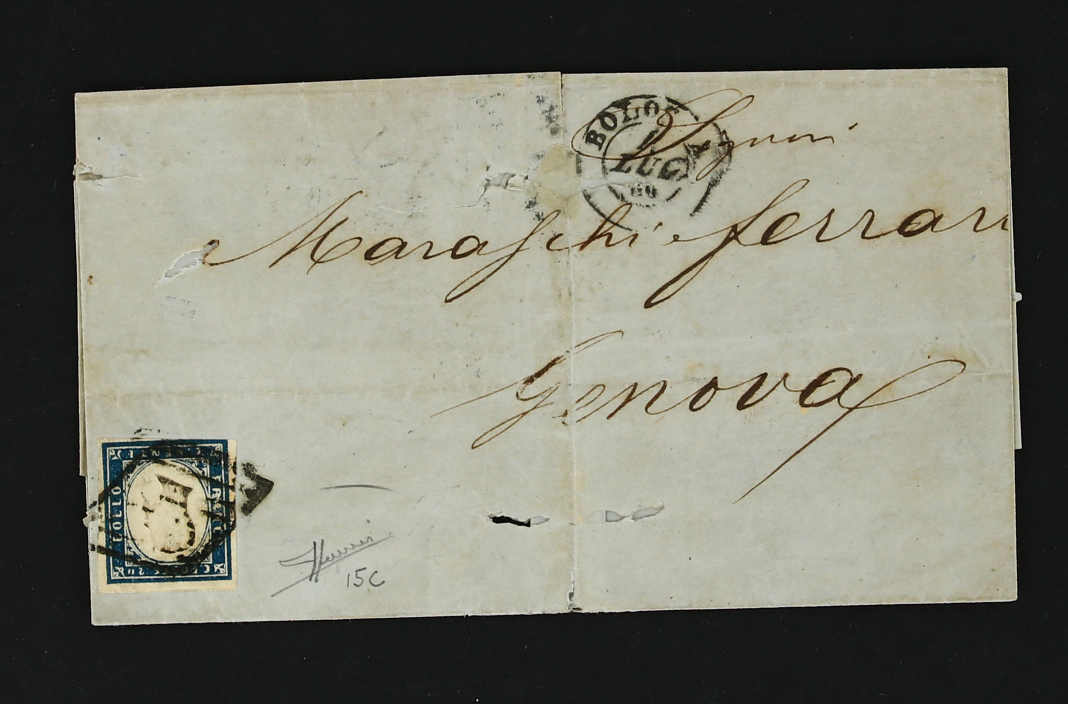 BOLOGNA
1
LUG
60
Signori
Maraschi e Ferrari
Genova
BOLLO
15C